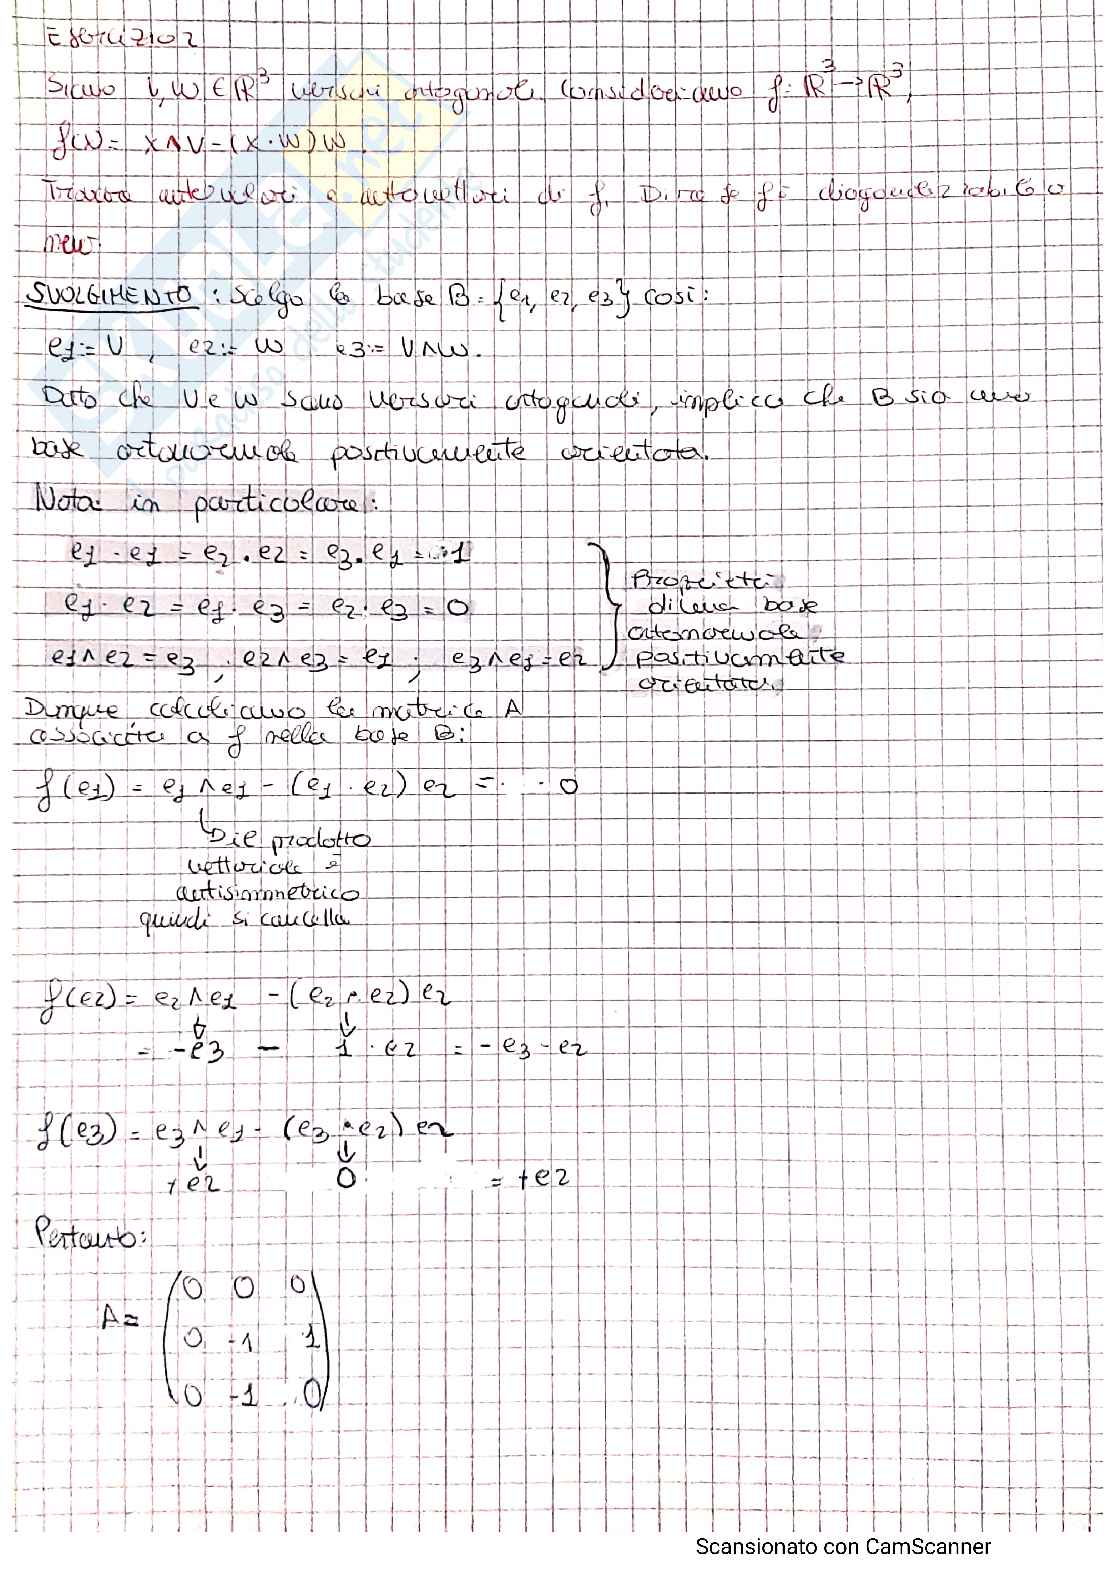 Esercizio 2
Siano v, w ∈ ℝ³ versori ortogonali consideriamo f: ℝ³→ℝ³,
f(x)= x∧v-(x·w)w.
Trova autovalori e autovettori di f. Dire se f è diagonalizzabile o
meno.
SVOLGIMENTO: Scelgo la base B={e1, e2, e3} così:
e1:= v, e2:= w e3:= v∧w.
Dato che v e w sono versori ortogonali, implica che B sia una
base ortonormale positivamente orientata.
Nota: in particolare:
e1 · e1 = e2 · e2 = e3 · e1 = 1
e1 · e2 = e1 · e3 = e2 · e3 = 0
e1∧e2 = e3, e2∧e3 = e1; e3∧e1 = e2
Proprietà
di una base
ortonormale
positivamente
orientata
Dunque, calcoliamo la matrice A
associata a f nella base B:
f(e1) = e1∧e1 - (e1 · e2) e2 = 0
Di il prodotto
vettoriale è
antisimmetrico
quindi si cancella
f(e2) = e2∧e1 - (e2 · e2) e2
= -e3 - 1 · e2 = -e3 - e2
f(e3) = e3∧e1 - (e3 · e2) e2
+e2 0 = +e2
Pertanto:
0 0 0
A= 0 -1 1
0 -1 0
Scansionato con CamScanner